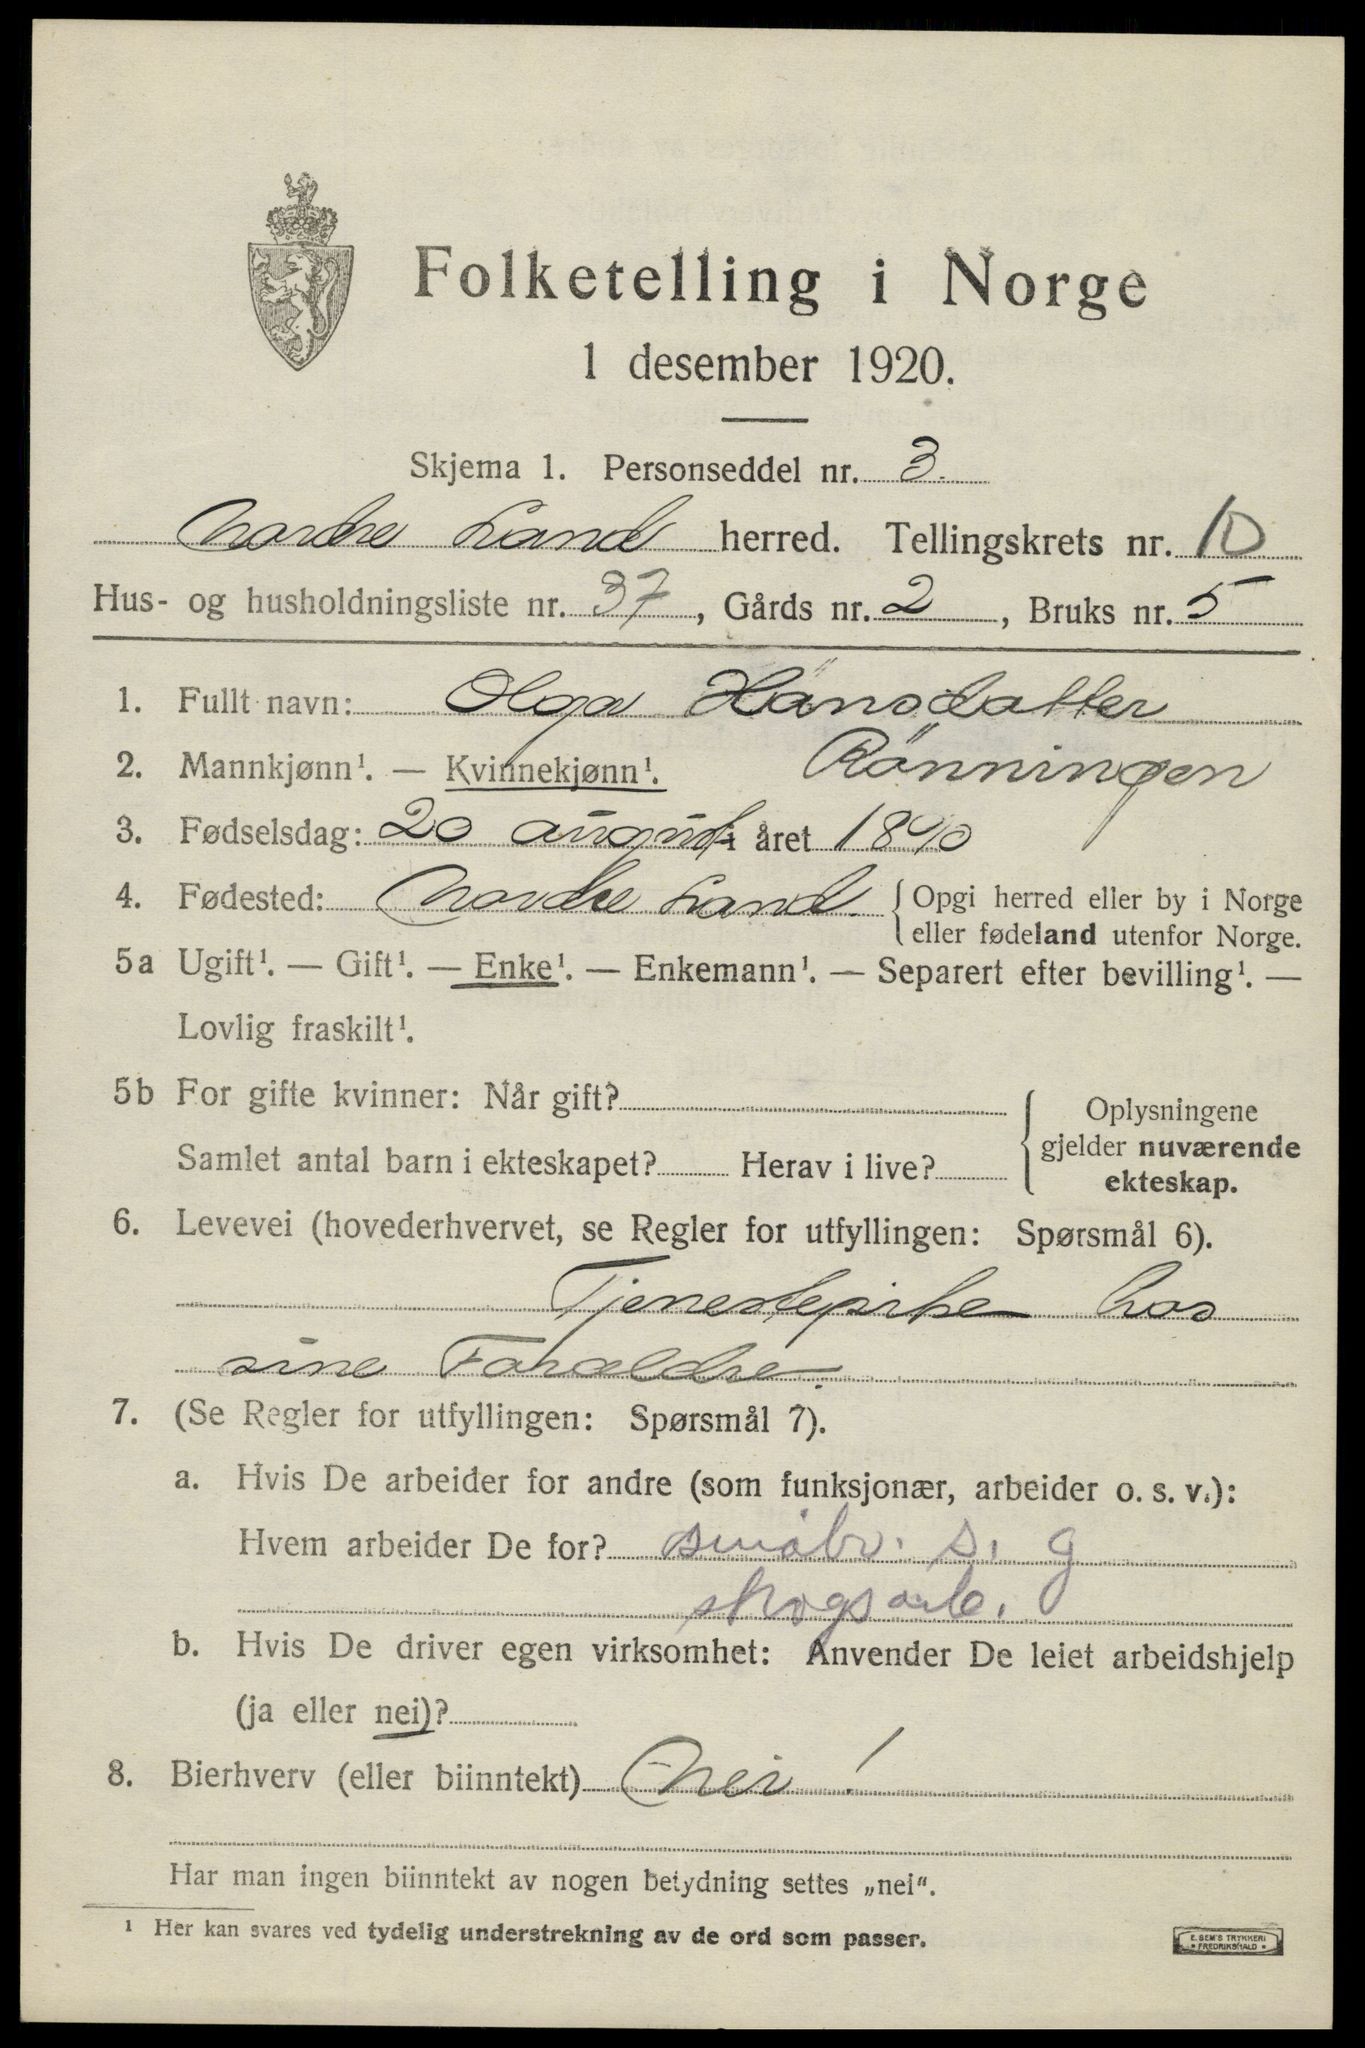 Folketelling i Norge
1 desember 1920.
Skjema 1. Personseddel nr. 3.
Nordre Land herred. Tellingskrets nr. 10
Hus- og husholdningsliste nr. 37, Gårds nr. 2, Bruks nr. 5
1. Fullt navn: Olga Hansdatter
2. Mannkjønn¹. — Kvinnekjønn¹. Rönningen
3. Fødselsdag: 20 august i året 1890
4. Fødested: Nordre Land. { Opgi herred eller by i Norge
eller fødeland utenfor Norge.
5a Ugift¹. — Gift¹. — Enke¹. — Enkemann¹. — Separert efter bevilling¹. —
Lovlig fraskilt¹.
5b For gifte kvinner: Når gift?
Samlet antal barn i ekteskapet? Herav i live?
{ Oplysningene
gjelder nuværende
ekteskap.
6. Levevei (hovederhvervet, se Regler for utfyllingen: Spørsmål 6).
Tjenestepike hos
sine Forældre.
7. (Se Regler for utfyllingen: Spørsmål 7).
a. Hvis De arbeider for andre (som funksjonær, arbeider o. s. v.):
Hvem arbeider De for? småbr. s. g
skogsarb.
b. Hvis De driver egen virksomhet: Anvender De leiet arbeidshjelp
(ja eller nei)?
8. Bierhverv (eller biinntekt) Nei!
Har man ingen biinntekt av nogen betydning settes „nei".
¹ Her kan svares ved tydelig understrekning av de ord som passer.
E. SEM'S TRYKKERI
* FREDRIKSHALD *